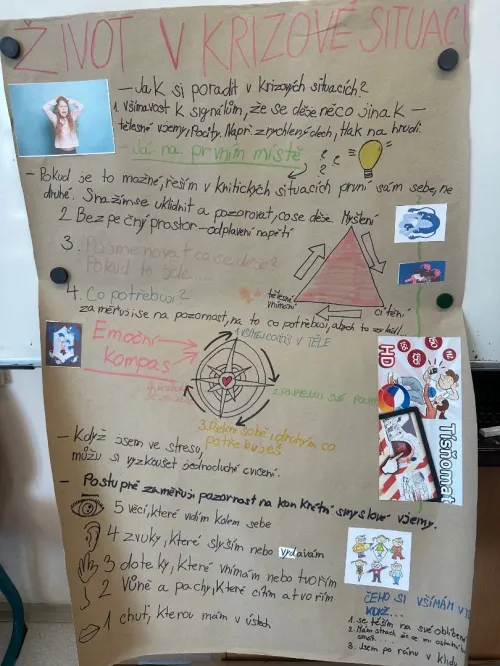 ŽIVOT V KRIZOVÉ SITUACI
– Jak si poradit v krizových situacích?
1. Všímavost k signálům, že se děje něco jinak –
tělesné vjemy, Pocity. Např. zrychlený dech, tlak na hrudi.
Já na prvním místě
– Pokud je to možné, řeším v kritických situacích první sám sebe, ne
druhé. Snažím se uklidnit a pozorovat, co se děje
Myšlení
2. Bezpečný prostor – odplavení napětí
3. Pojmenovat co se děje?
Pokud to jde...
tělesné
vnímání
Cítění
4. Co potřebuji?
zaměřuji se na pozornost, na to co potřebuji, abych to
Emoční
kompas
1. VŠÍMEJ CO CÍTÍŠ V TĚLE
2. POJMENUJ SVÉ
3. Řekni sobě i druhým, co
potřebuješ
HD
Tisňomat
– Když jsem ve stresu,
můžu si vyzkoušet jednoduché cvičení.
– Postupně zaměřuji pozornost na konkrétní smyslové vjemy.
5 věcí, které vidím kolem sebe
4 zvuky, které slyším nebo vydávám
3 doteky, které vnímám nebo tvořím
2 Vůně a pachy, které cítím a tvořím
1 chuť, kterou mám v ústech
ČEHO SI VŠÍMÁM V
KDYŽ...
1. se těším na své oblíbené
2. Mám strach že se mi ostatní
smát...
3. Jsem po ránu v klidu